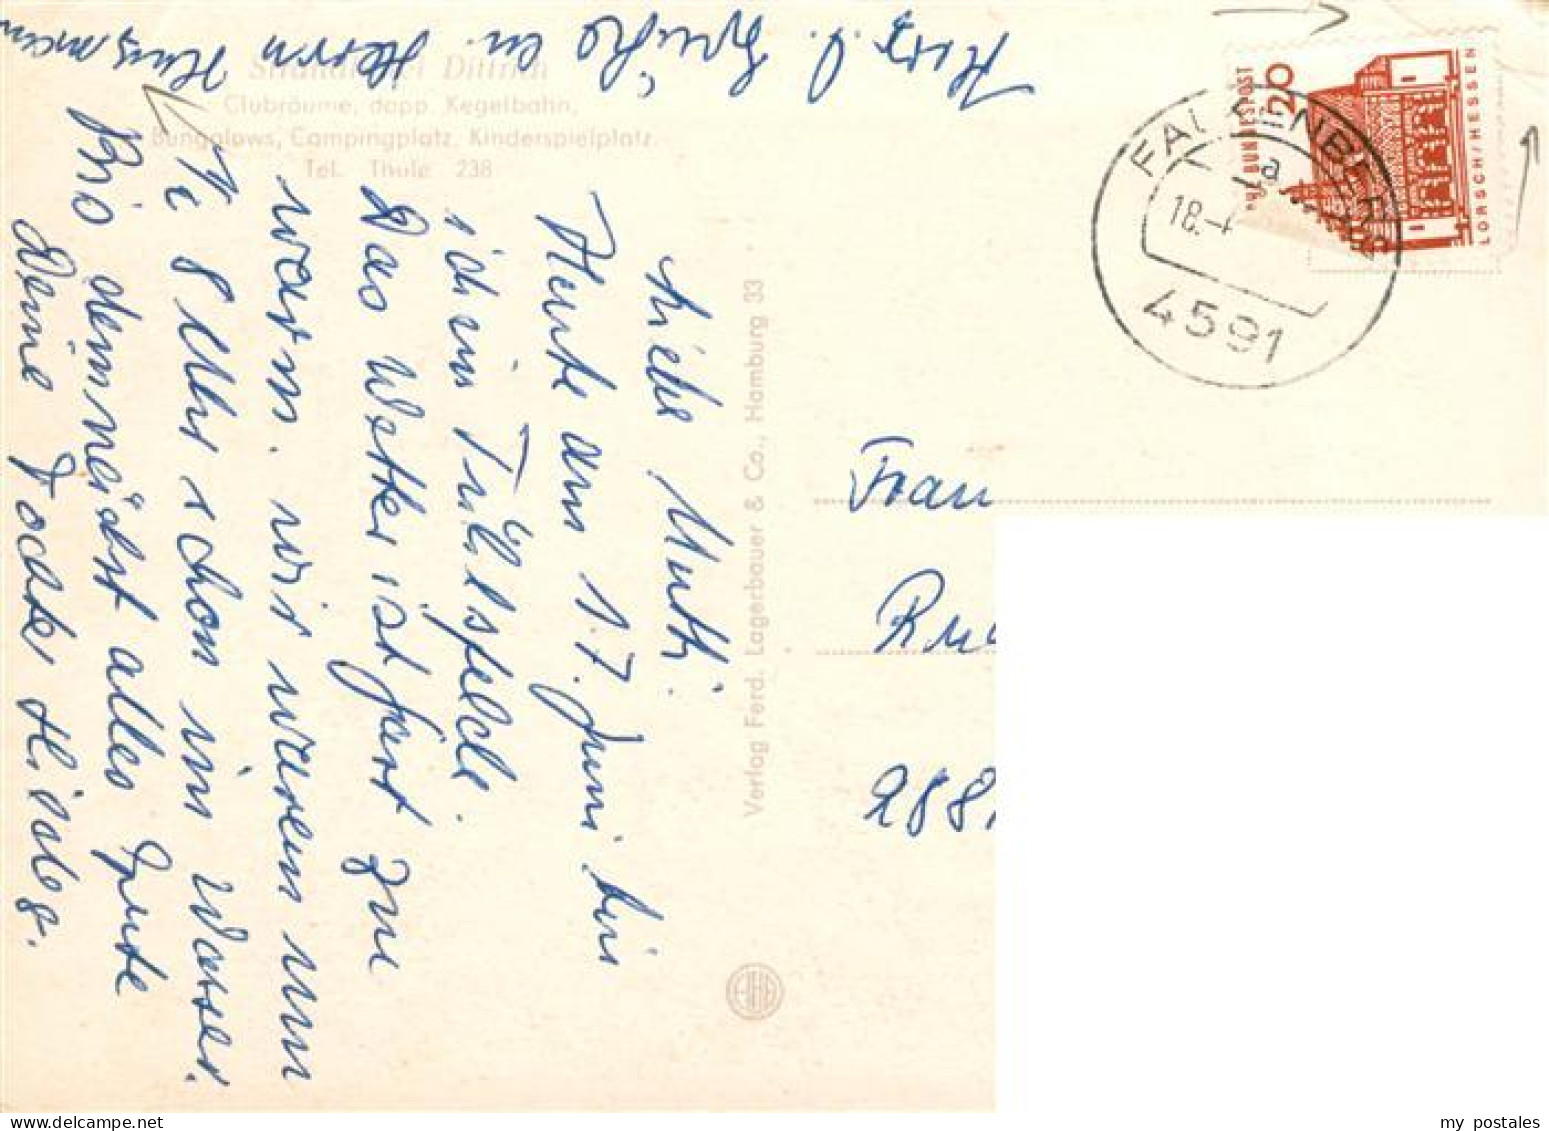 Strandhotel Dittrich
Clubräume, dopp. Kegelbahn,
Bungalows, Campingplatz, Kinderspielplatz
Tel. Thüle 238
Liebe Mutti.
Heute am 17. Juni bin
ich in Tülsfelde.
Das Wetter ist fast zu
warm. wir waren um
½ 8 Uhr schon im Wasser.
Bis demnächst alles Gute
Deine Tochter
Herzl. Grüße
Herrn
Verlag Ferd. Lagerbauer & Co., Hamburg 33
DEUTSCHE BUNDESPOST
20
LORSCH/HESSEN
FALKENBERG
a
18.-
4591
Frau
2881
my postales